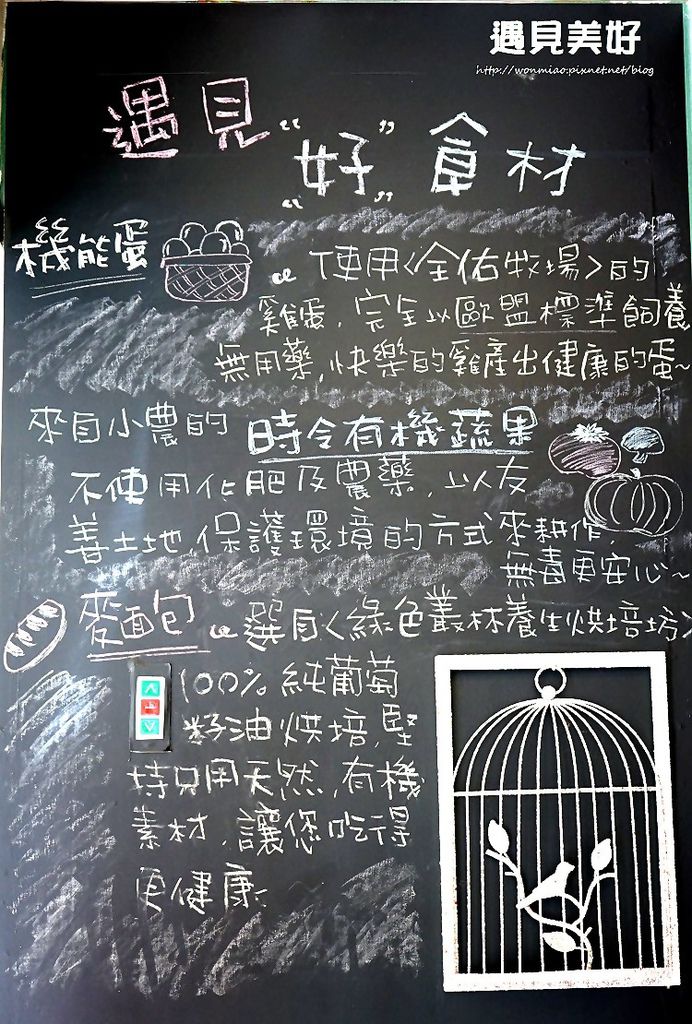 遇見美好
http://wonmiao.pixnet.net/blog
遇見
"好"食材
機能蛋
使用<全佑牧場>的
雞蛋,完全以歐盟標準飼養
無用藥,快樂的雞產出健康的蛋~
來自小農的 時令有機蔬果
不使用化肥及農藥,以友
善土地,保護環境的方式來耕作,
無毒更安心~
麥面包 選自<綠色叢林養生烘培坊>
100%純葡萄
籽油烘培,堅
持只用天然,有機
素材,讓您吃得
更健康